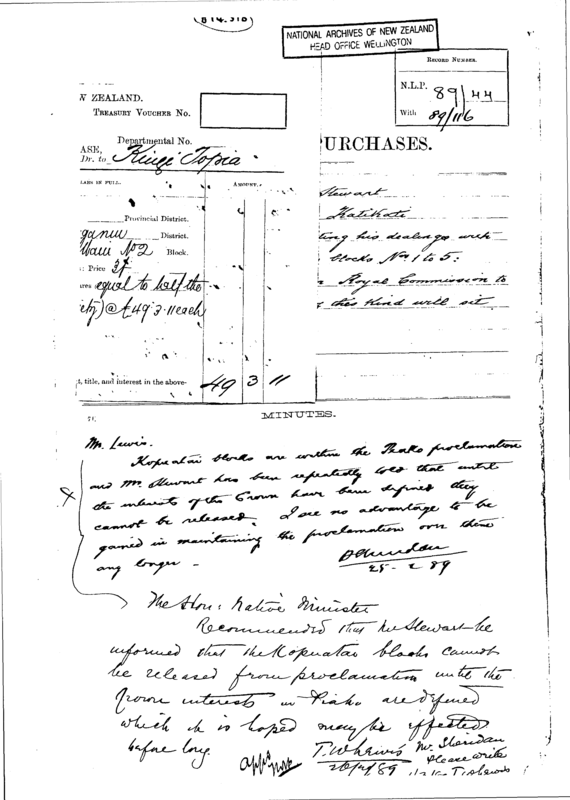 NATIONAL ARCHIVES OF NEW ZEALAND
HEAD OFFICE WELLINGTON
RECORD NUMBER.
N.L.P. 89/44
With 89/116
ZEALAND.
TREASURY VOUCHER No.
Departmental No.
Dr. to Kingi Topia
AMOUNT.
Provincial District.
District.
Waii No 2 Block.
: Price
equal to half the
@ £49.3.11 each
, title, and interest in the above-
49 3 11
URCHASES.
Stewart
Katikati
ting his dealings with
blocks Nos 1 to 5:
Royal Commission to
this kind will sit
MINUTES.
Mr. Lewis.
Kopuatai blocks are within the Piako proclamation
and Mr. Stewart has been repeatedly told that until
the interests of the Crown have been defined they
cannot be released. I see no advantage to be
gained in maintaining the proclamation over them
any longer -
25-2 89
The Hon: Native Minister
Recommended that Mr Stewart be
informed that the Kopuatai blocks cannot
be released from proclamation until the
Crown interests in Piako are defined
which it is hoped may be effected
before long.
T. W. Lewis
Mr. Sheridan
Please write